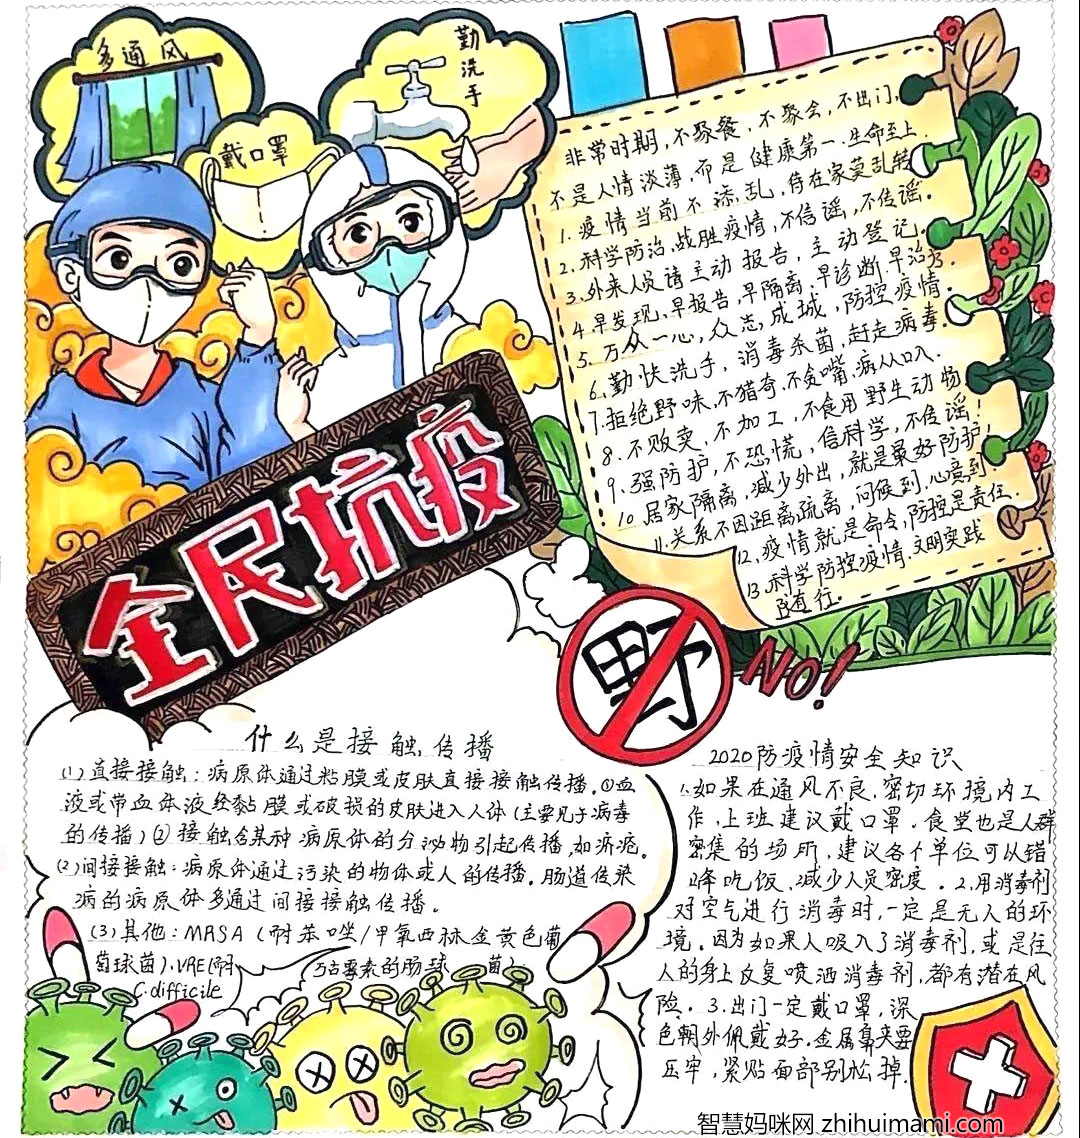 多通风
勤洗手
戴口罩
非常时期,不聚餐,不聚会,不出门,
不是人情淡薄,而是健康第一.生命至上.
1.疫情当前不添乱,待在家莫乱转
2.科学防治,战胜疫情,不信谣,不传谣。
3.外来人员请主动报告,主动登记。
4.早发现,早报告,早隔离,早诊断.早治疗.
5.万众一心,众志成城,防控疫情。
6.勤快洗手,消毒杀菌,赶走病毒。
7.拒绝野味,不猎奇,不贪嘴,病从口入.
8.不贩卖,不加工,不食用野生动物
9.强防护,不恐慌,信科学,不传谣!
10.居家隔离,减少外出,就是最好防护!
11.关系不因距离疏离,问候到,心意到
12.疫情就是命令,防控是责任.
13.科学防控疫情,文明实践
随行。
全民抗疫
野
NO!
什么是接触传播
(1)直接接触:病原体通过粘膜或皮肤直接接触传播.①血
液或带血体液经黏膜或破损的皮肤进入人体(主要见于病毒
的传播)②接触含某种病原体的分泌物引起传播,如疥疮。
(2)间接接触:病原体通过污染的物体或人的传播.肠道传染
病的病原体多通过间接接触传播。
(3)其他:MRSA(耐苯唑/甲氧西林金黄色葡
萄球菌).VRE(耐万古霉素的肠球菌).
C.difficile
2020防疫情安全知识
1.如果在通风不良.密切环境内工
作,上班建议戴口罩.食堂也是人群
密集的场所,建议各个单位可以错
峰吃饭.减少人员密度.2.用消毒剂
对空气进行消毒时,一定是无人的环
境.因为如果人吸入了消毒剂,或是往
人的身上反复喷洒消毒剂,都有潜在风
险.3.出门一定戴口罩,深
色朝外佩戴好.金属鼻夹要
压牢,紧贴面部别松掉.
智慧妈咪网 zhihuimami.com